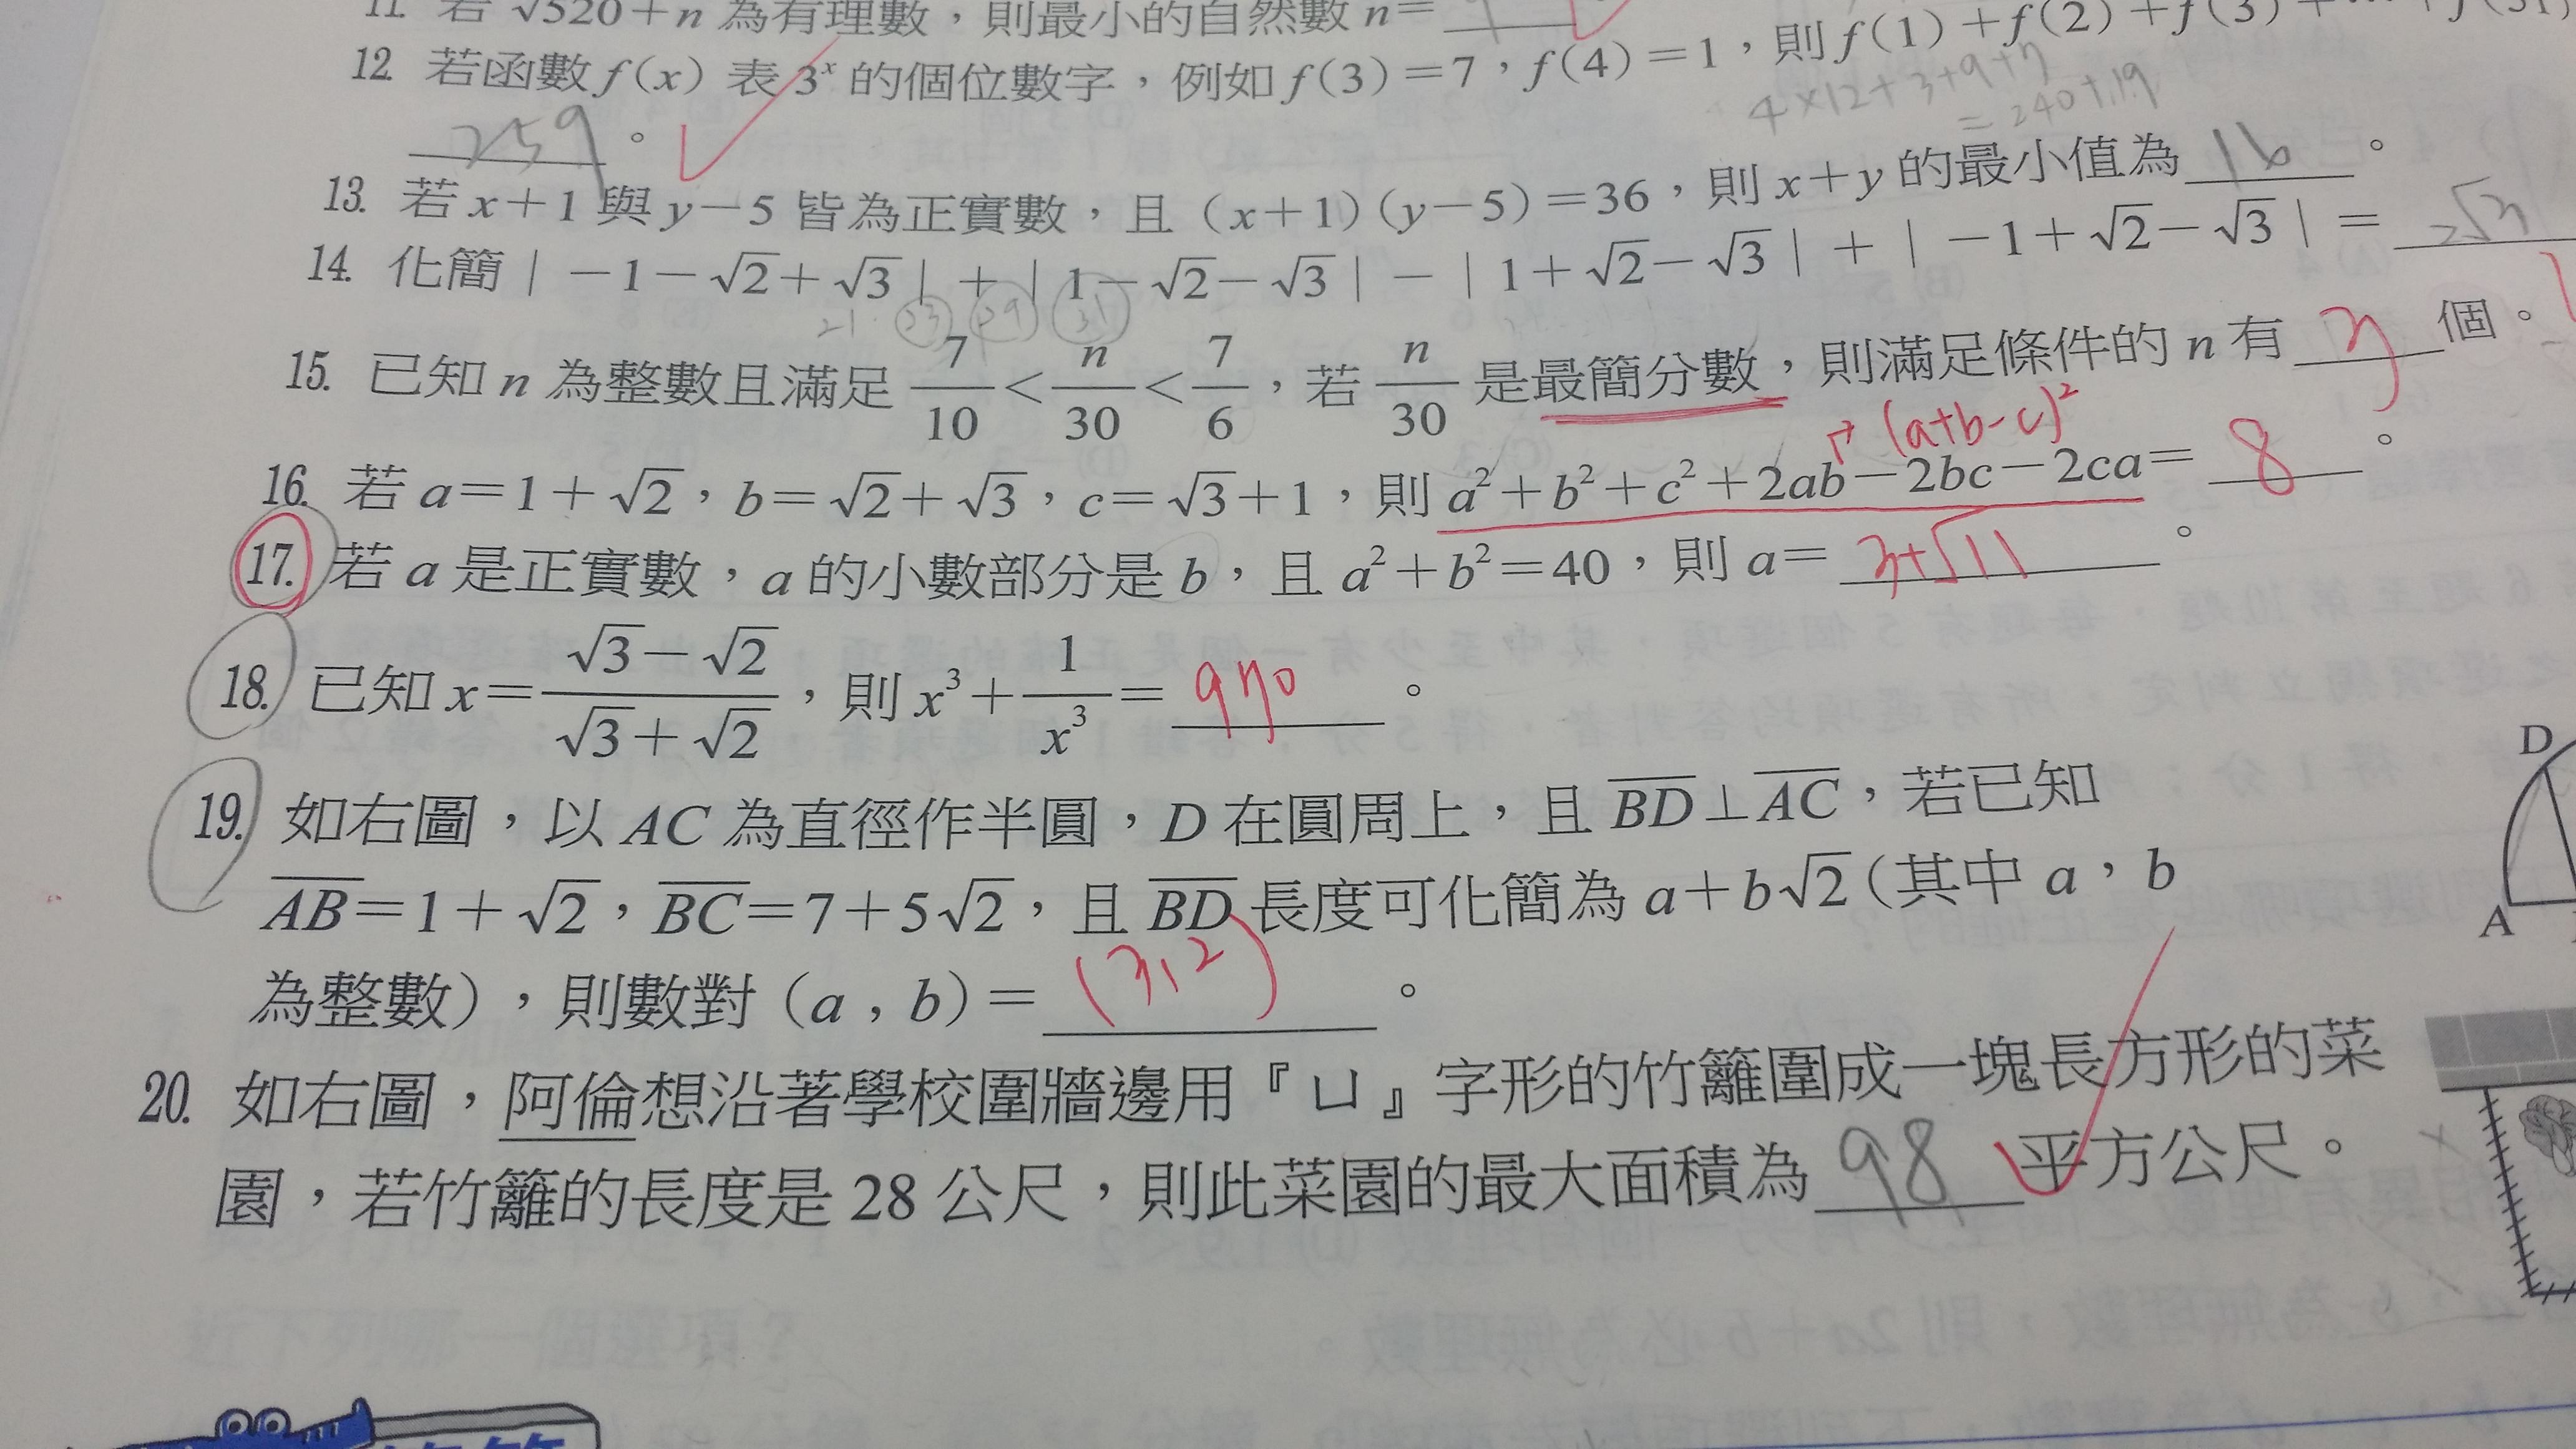 11. 若 √520+n 為有理數，則最小的自然數 n=
12. 若函數 f(x) 表 3ˣ 的個位數字，例如 f(3)=7，f(4)=1，則 f(1)+f(2)+f(3)+⋯+f(31)
4×12+3+9+7
=240+19
259。
13. 若 x+1 與 y−5 皆為正實數，且 (x+1)(y−5)=36，則 x+y 的最小值為 16。
14. 化簡 | −1−√2+√3 | + | 1−√2−√3 | − | 1+√2−√3 | + | −1+√2−√3 | = 2√3
21 23 29 31
15. 已知 n 為整數且滿足 7/10 < n/30 < 7/6，若 n/30 是最簡分數，則滿足條件的 n 有 3 個。
(a+b−c)²
16. 若 a=1+√2，b=√2+√3，c=√3+1，則 a²+b²+c²+2ab−2bc−2ca= 8。
17. 若 a 是正實數，a 的小數部分是 b，且 a²+b²=40，則 a= 3+√11。
18. 已知 x=(√3−√2)/(√3+√2)，則 x³+1/x³= 970。
19. 如右圖，以 AC 為直徑作半圓，D 在圓周上，且 BD⊥AC，若已知
AB=1+√2，BC=7+5√2，且 BD 長度可化簡為 a+b√2（其中 a，b
為整數），則數對 (a , b)= (3,2)。
D
A
20. 如右圖，阿倫想沿著學校圍牆邊用『ㄩ』字形的竹籬圍成一塊長方形的菜
園，若竹籬的長度是 28 公尺，則此菜園的最大面積為 98 平方公尺。